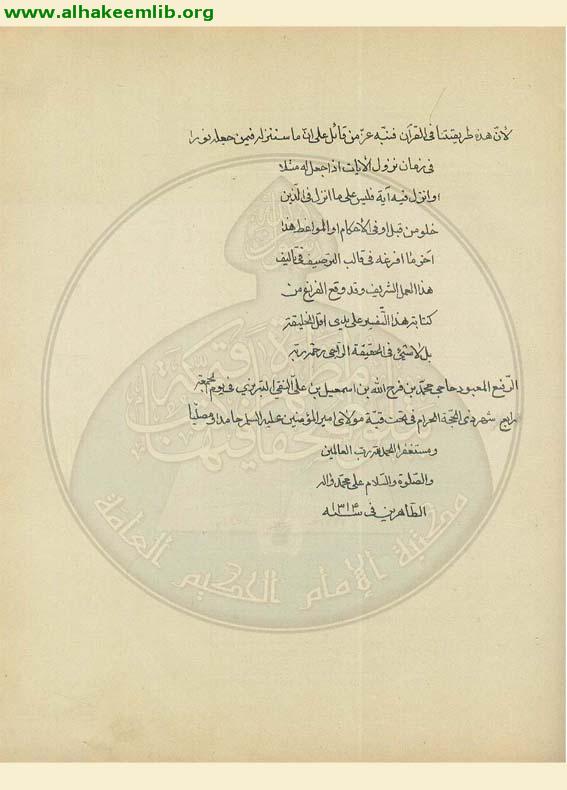 www.alhakeemlib.org
لانّ هذه طريقتنا فى القرآن فنبّه عزّ من قائل على انّ ما سننزله فيمن جعله نورا
فى زمان نزول الايات اذا جعل له مثلا
او انزل فيه آية فليس على ما انزل فى الّذين
خلو من قبل او فى الاحكام او المواعظ هذا
آخر ما افرغه فى قالب التوصيف فى تاليف
هذا العمل الشريف وقد وقع الفراغ من
كتابة هذا التّفسير على يدى اقل الخليقة
بل لاشئ فى الحقيقة الرّاجى رحمة ربّه
الرّفيع المعبود حاجى محمّد بن فرج الله بن اسمعيل بن علىّ النقى التبريزى فى يوم الجمعة
رابع شهر ذى الحجّة الحرام فى تحت قبّة مولاى امير المؤمنين عليه السلم حامدا ومصلّيا
ومستغفرا الحمد لله ربّ العالمين
والصّلوة والسّلام على محمّد واله
الطّاهرين فى سنه ١٣١٤
مكتبة الإمام الحكيم العامة